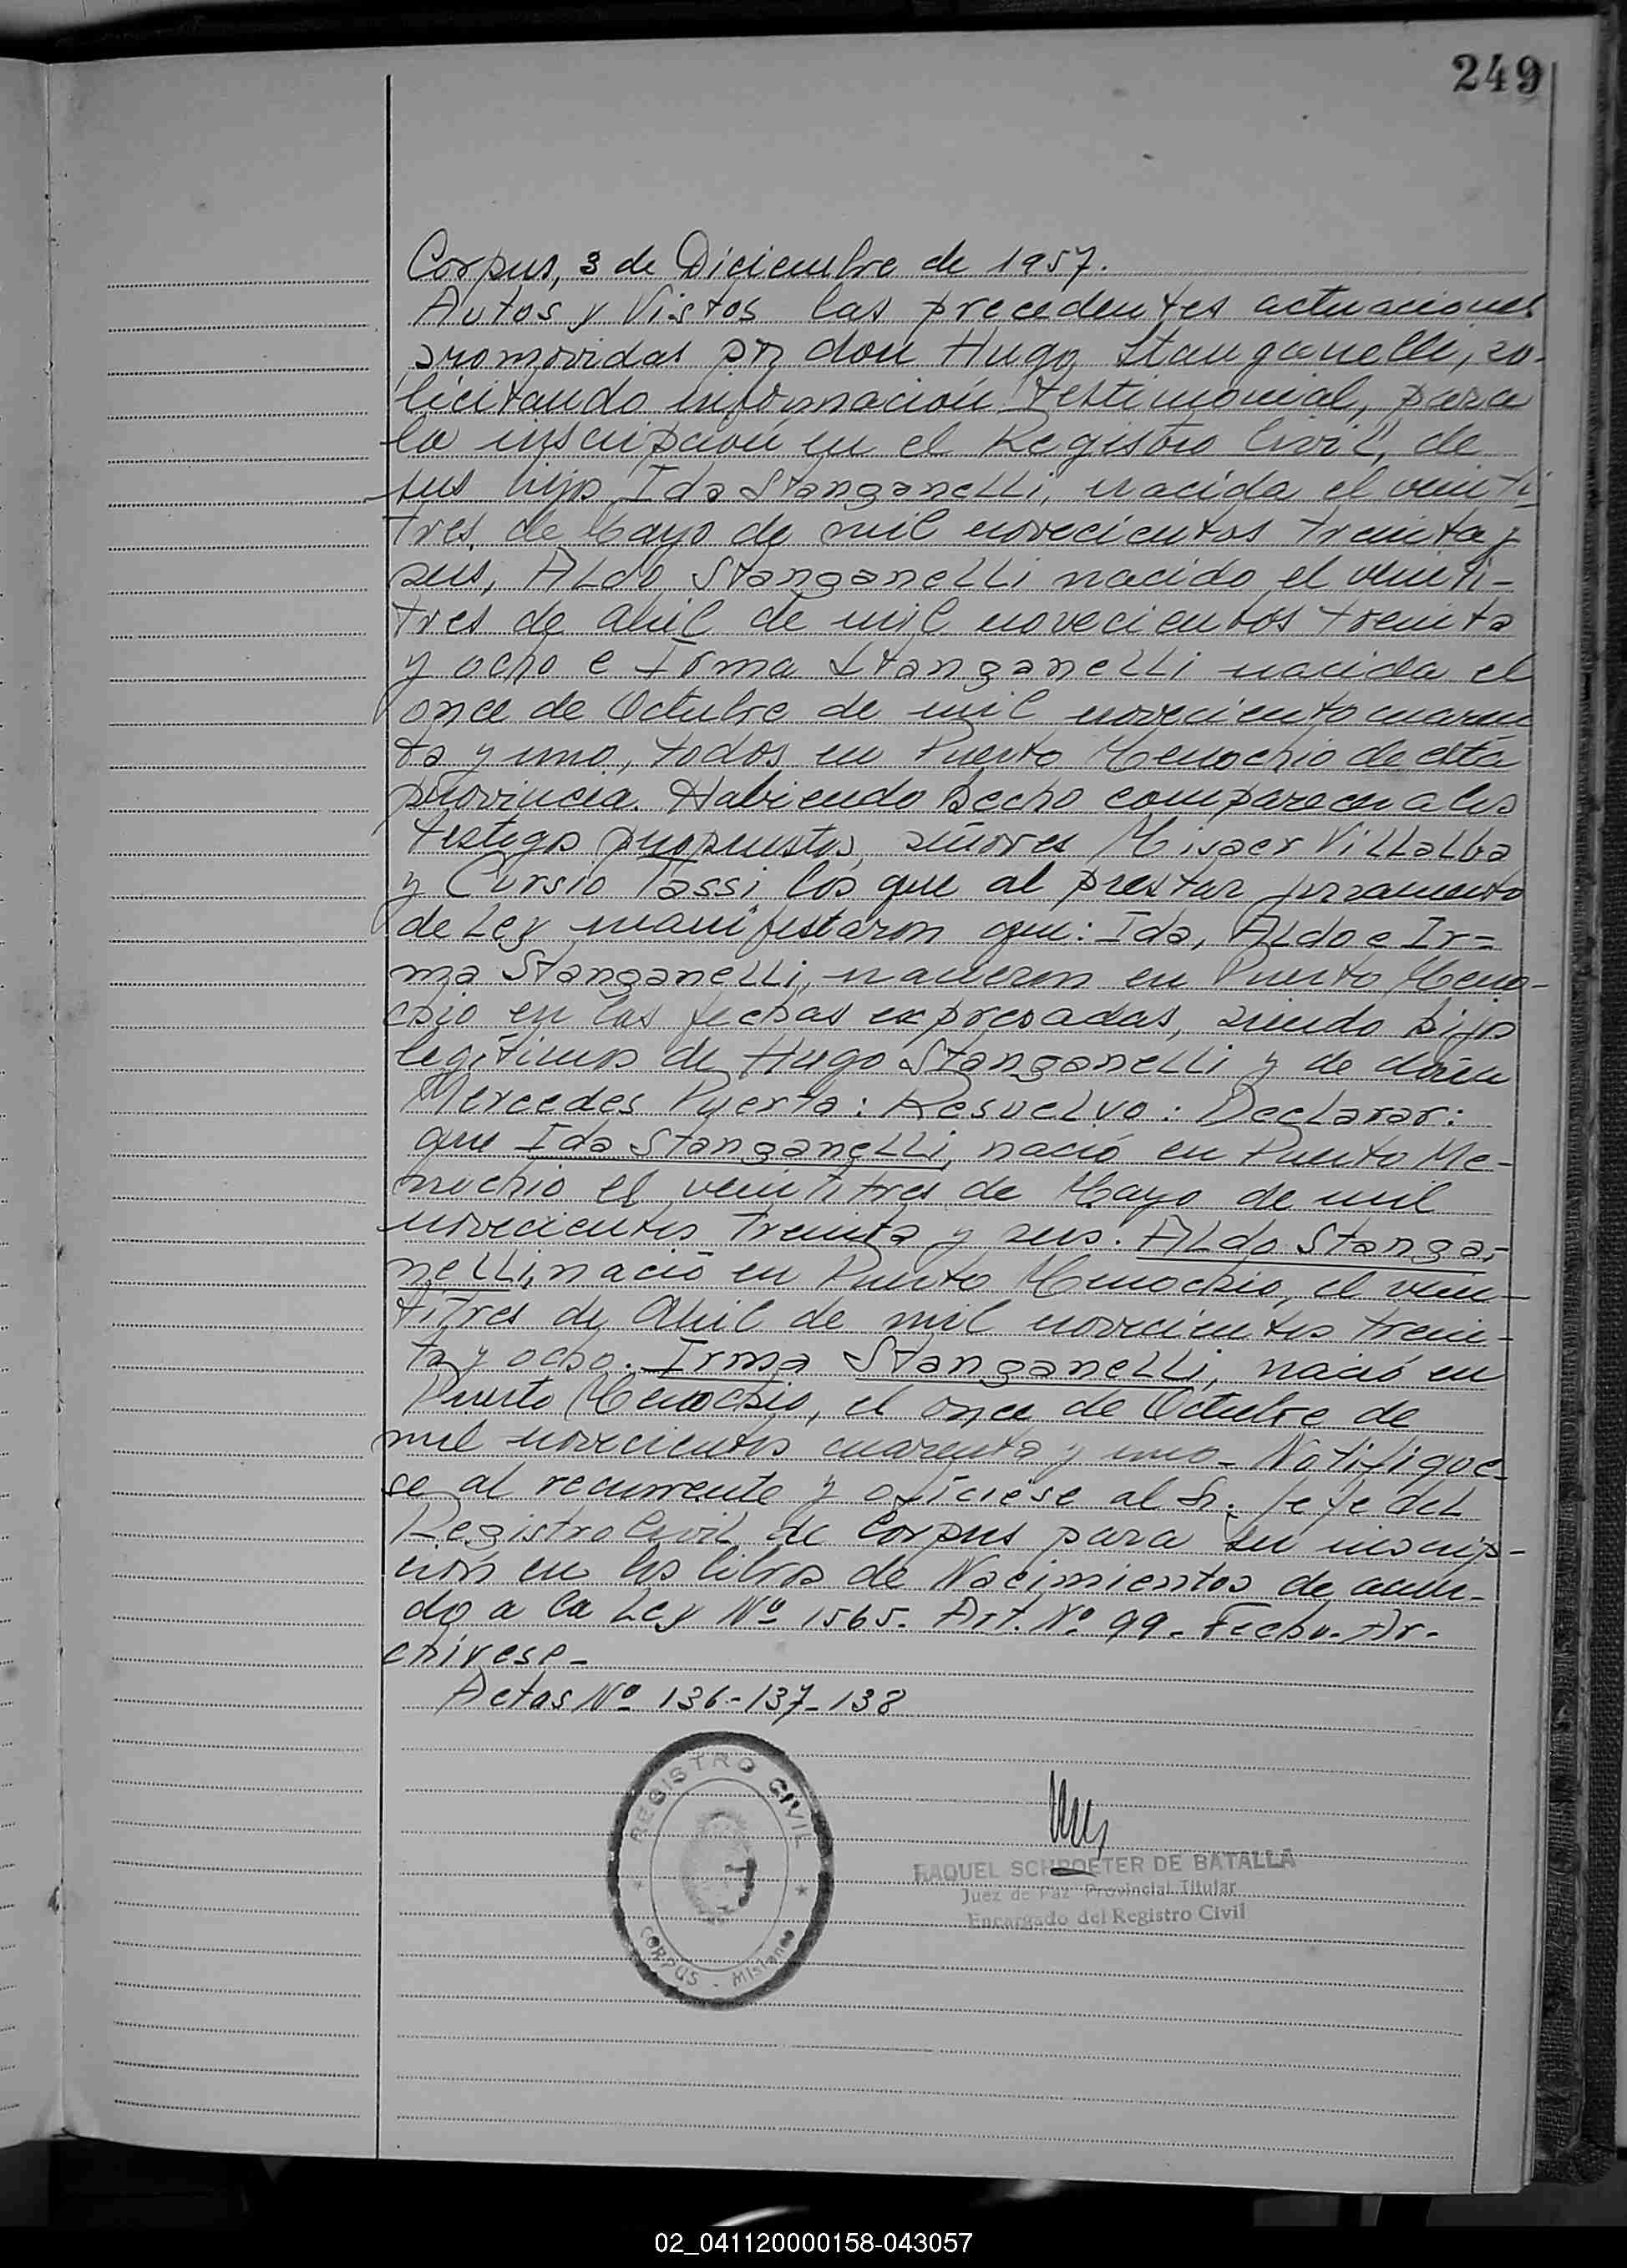 249
Corpus, 3 de Diciembre de 1957.
Autos y Vistos las precedentes actuaciones
promovidas por don Hugo Stanganelli, so-
licitando información testimonial, para
la inscripción en el Registro Civil, de
sus hijos Ida Stanganelli, nacida el veinti
tres de Mayo de mil novecientos treinta y
seis, Aldo Stanganelli nacido el veinti-
tres de abril de mil novecientos treinta
y ocho e Irma Stanganelli nacida el
once de Octubre de mil novecientos cuaren
ta y uno, todos en Puerto Menochio de esta
provincia. Habiendo hecho comparecer a los
testigos propuestos, señores Misaer Villalba
y Cursio Tassi, los que al prestar juramento
de Ley manifestaron que: Ida, Aldo e Ir=
ma Stanganelli, nacieron en Puerto Meno-
chio en las fechas expresadas, siendo hijos
legítimos de Hugo Stanganelli y de doña
Mercedes Puerta: Resuelvo: Declarar:
que Ida Stanganelli, nació en Puerto Me-
nochio el veintitres de Mayo de mil
novecientos treinta y seis. Aldo Stanga-
nelli, nació en Puerto Menochio, el vein-
titres de Abril de mil novecientos trein-
ta y ocho. Irma Stanganelli, nació en
Puerto Menochio, el once de Octubre de
mil novecientos cuarenta y uno- Notifique-
se al recurrente y oficiese al Sr. Jefe del
Registro Civil de Corpus para su inscrip-
ción en los libros de Nacimientos de acuer-
do a la Ley Nº 1565. Art. Nº 99- Fecho. Ar-
chivese-
Actas Nº 136-137-138
REGISTRO CIVIL
CORPUS - Misiones
RAQUEL SCHROETER DE BATALLA
Juez de Paz Provincial Titular
Encargado del Registro Civil
02_041120000158-043057